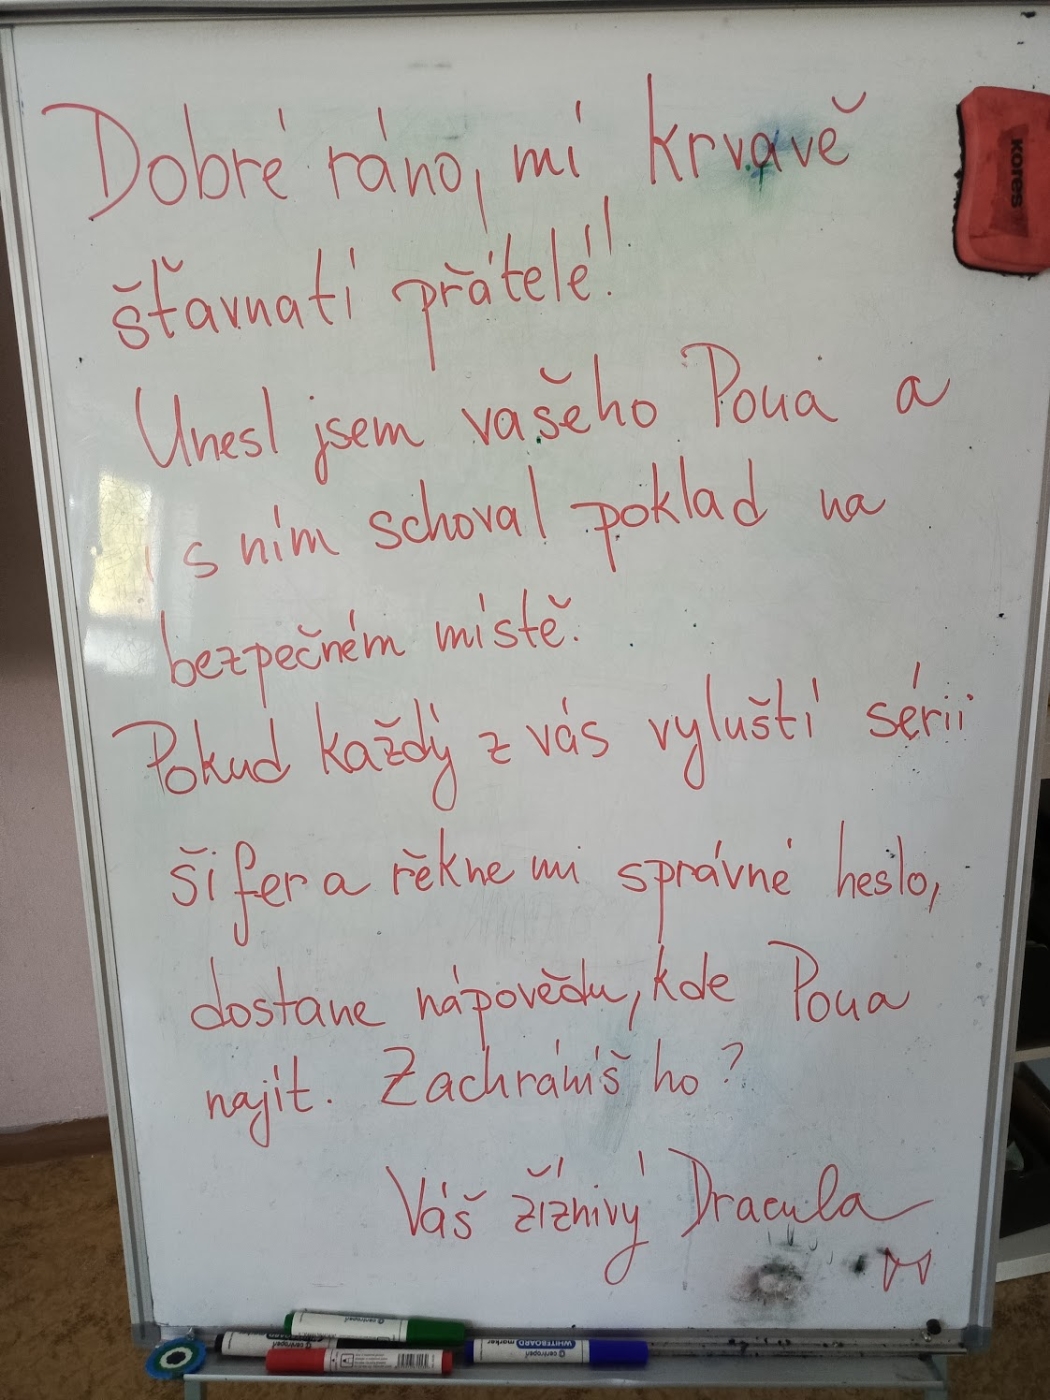 Dobré ráno, mí krvavě
šťavnatí přátelé!
Unesl jsem vašeho Poua a
s ním schoval poklad na
bezpečném místě.
Pokud každý z vás vyluští sérii
šifer a řekne mi správné heslo,
dostane nápovědu, kde Poua
najít. Zachráníš ho?
Váš žíznivý Dracula
KORES
centropen
centropen
WHITEBOARD marker
centropen